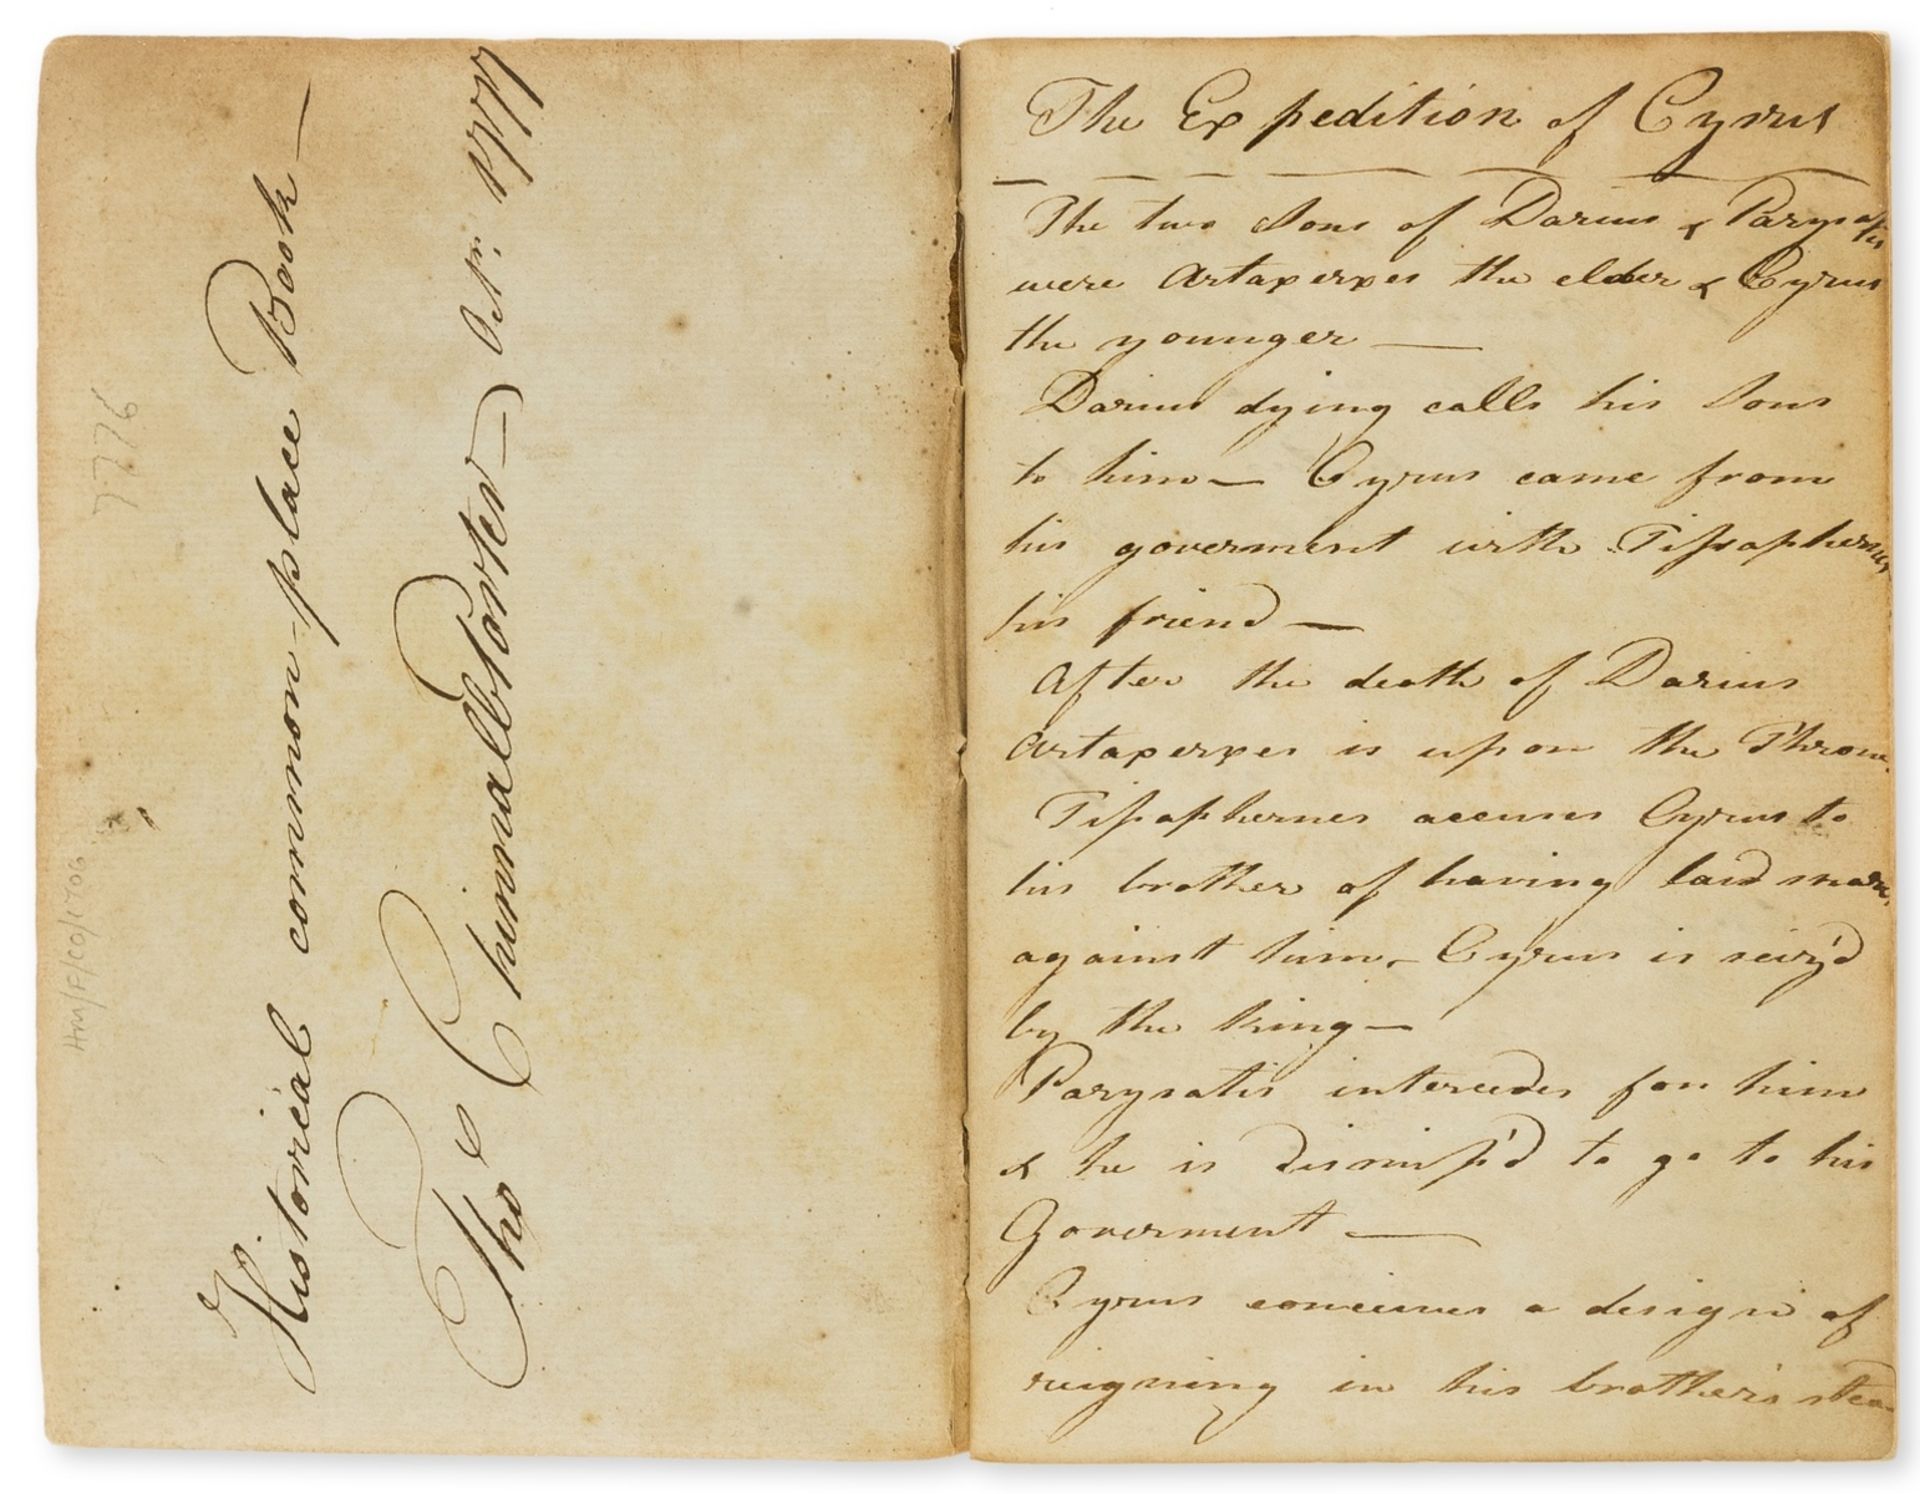 Historical common-place Book —
Tho.s Chinnall Porter — 1777
7776
HM/F/CO/1706
The Expedition of Cyrus
The two Sons of Darius & Parysatis
were Artaxerxes the elder & Cyrus
the younger —
Darius dying calls his Sons
to him — Cyrus came from
his goverment with Tissaphernes
his friend —
After the death of Darius
Artaxerxes is upon the Throne.
Tissaphernes accuses Cyrus to
his brother of having laid snares
against him, — Cyrus is seiz'd
by the King —
Parysatis intercedes for him
& he is dismiss'd to go to his
Goverment —
Cyrus conceives a design of
reigning in his brother's stead